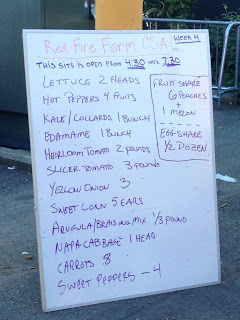 Red Fire Farm CSA!
Week 4
THIS SITE IS OPEN FROM 4:30 UNTIL 7:30
LETTUCE 2 HEADS
HOT PEPPERS 4 FRUITS
KALE/COLLARDS 1 BUNCH
EDAMAME 1 BUNCH
HEIRLOOM TOMATO 2 POUNDS
SLICER TOMATO 3 POUNDS
YELLOW ONION 3
SWEET CORN 5 EARS
ARUGULA/BRAISING MIX 1/3 POUND
NAPA CABBAGE 1 HEAD
CARROTS 8
SWEET PEPPERS - 4
FRUIT SHARE
6 PEACHES
+
1 MELON
EGG SHARE
1/2 DOZEN